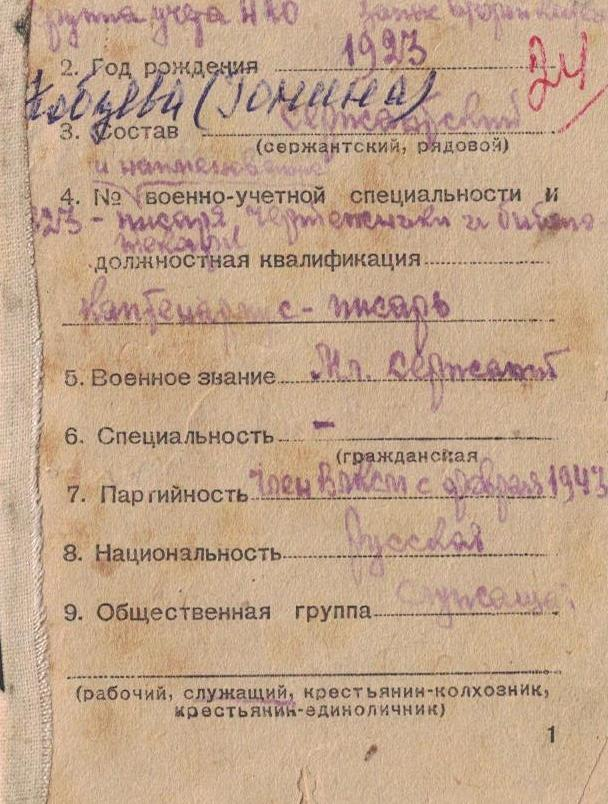 группа учета НКО запас второй
2. Год рождения 1923
24
Кобцева (Гонина)
3. Состав Сержантский
(сержантский, рядовой)
и наименование
4. № военно-учетной специальности и
323 - писаря, чертежники и библио-
текари
должностная квалификация
каптенармус - писарь
5. Военное звание Мл. Сержант
6. Специальность -
(гражданская
7. Партийность Член ВЛКСМ с февраля 1943
8. Национальность русская
9. Общественная группа Служащая
(рабочий, служащий, крестьянин-колхозник,
крестьянин-единоличник)
1